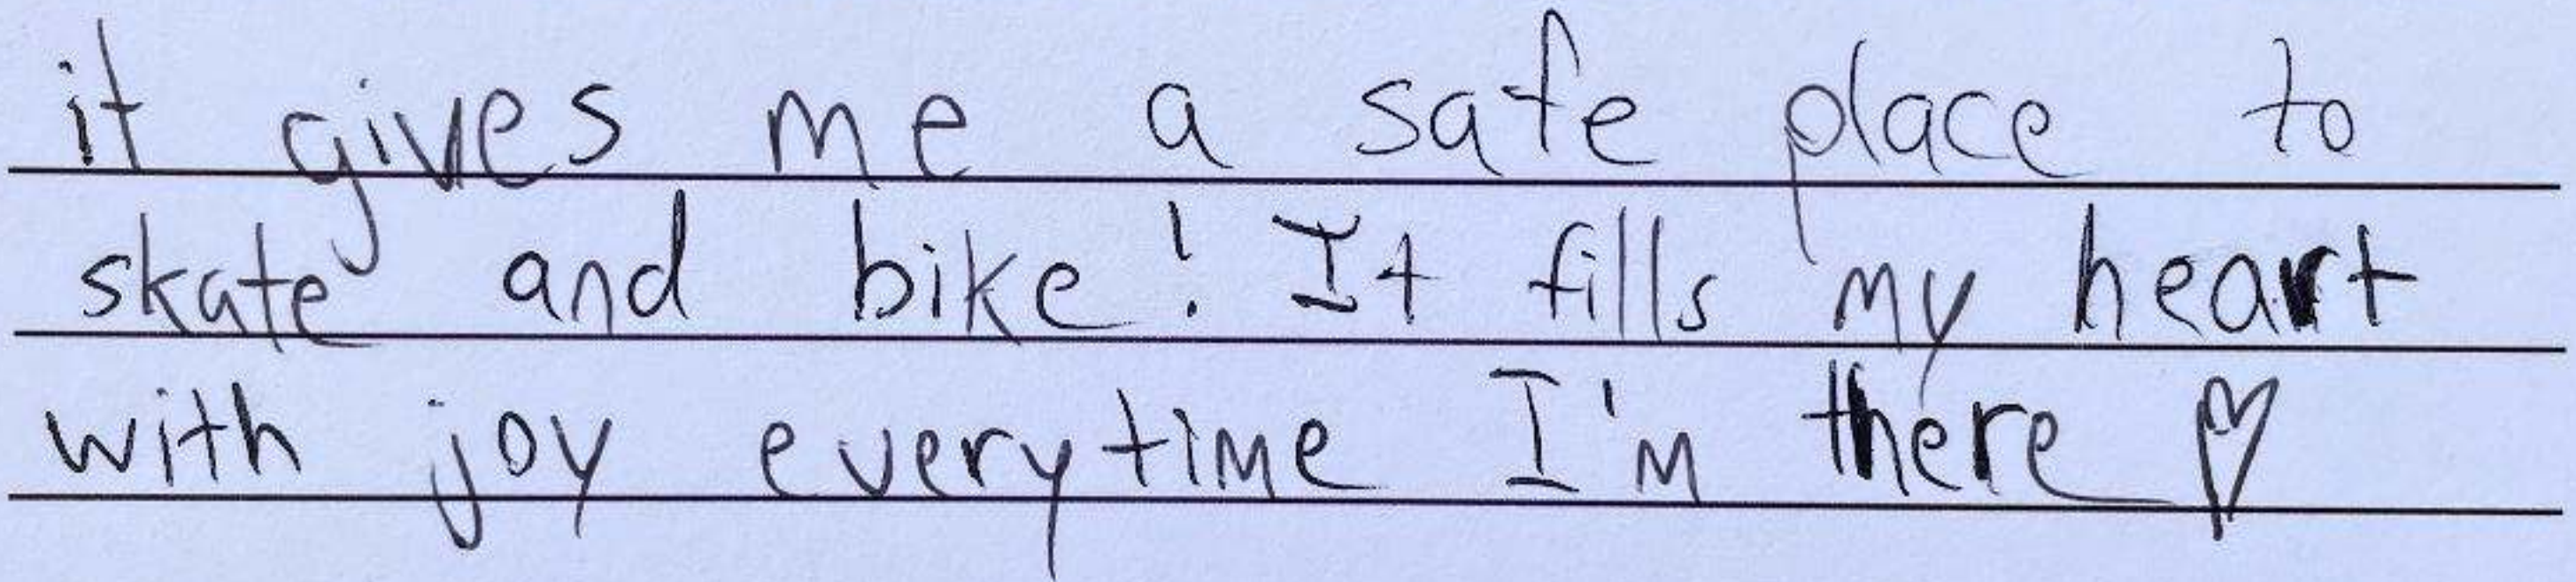 it gives me a safe place to
skate and bike! It fills my heart
with joy everytime I'm there ♡